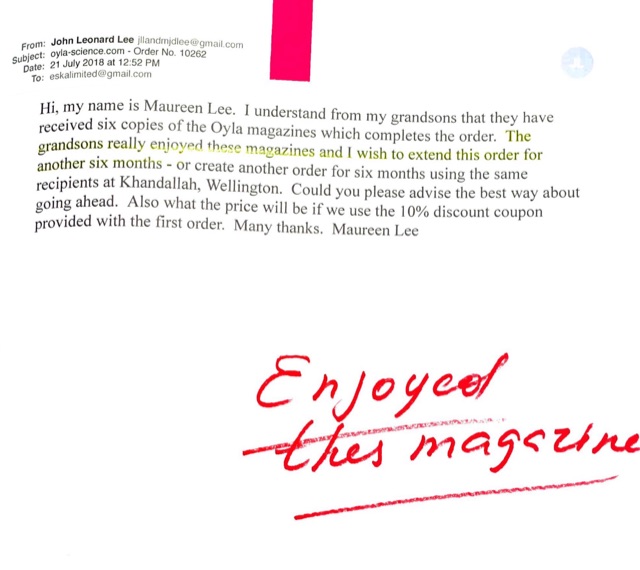 From: John Leonard Lee jllandmjdlee@gmail.com
Subject: oyla-science.com - Order No. 10262
Date: 21 July 2018 at 12:52 PM
To: eskalimited@gmail.com
Hi, my name is Maureen Lee. I understand from my grandsons that they have
received six copies of the Oyla magazines which completes the order. The
grandsons really enjoyed these magazines and I wish to extend this order for
another six months - or create another order for six months using the same
recipients at Khandallah, Wellington. Could you please advise the best way about
going ahead. Also what the price will be if we use the 10% discount coupon
provided with the first order. Many thanks. Maureen Lee
Enjoyed
thes magazine